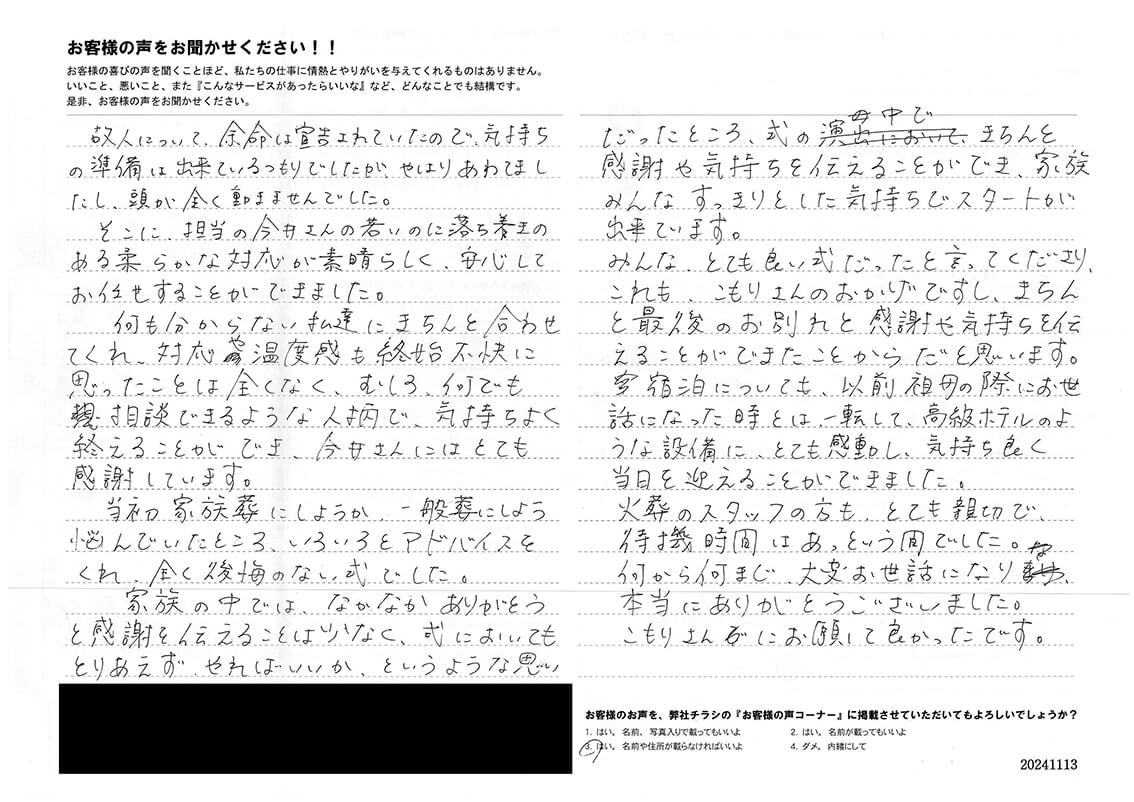 お客様の声をお聞かせください！！
お客様の喜びの声を聞くことほど、私たちの仕事に情熱とやりがいを与えてくれるものはありません。
いいこと、悪いこと、また『こんなサービスがあったらいいな』など、どんなことでも結構です。
是非、お客様の声をお聞かせください。
故人について、余命は宣告されていたので、気持ち
の準備は出来ているつもりでしたが、やはりあわてまし
たし、頭が全く動きませんでした。
そこに、担当の今井さんの若いのに落ち着きの
ある柔らかな対応が素晴らしく、安心して
お任せすることができました。
何も分からない私達にきちんと合わせ
てくれ、対応や温度感も終始不快に
思ったことは全くなく、むしろ、何でも
相談できるような人柄で、気持ちよく
終えることができ、今井さんにはとても
感謝しています。
当初家族葬にしようか、一般葬にしよう
悩んでいたところ、いろいろとアドバイスを
くれ、全く後悔のない式でした。
家族の中では、なかなかありがとう
と感謝を伝えることは少なく、式においても
とりあえず、やればいいか、というような思い
だったところ、式の中で、きちんと
感謝や気持ちを伝えることができ、家族
みんなすっきりとした気持ちでスタートが
出来ています。
みんな、とても良い式だったと言ってくださり、
これも、こもりさんのおかげですし、きちん
と最後のお別れと感謝や気持ちを伝
えることができたことからだと思います。
宿泊についても、以前祖母の際にお世
話になった時とは一転して、高級ホテルのよ
うな設備に、とても感動し、気持ち良く
当日を迎えることができました。
火葬のスタッフの方も、とても親切で、
待機時間はあっという間でした。
何から何まで、大変お世話になり、
本当にありがとうございました。
こもりさんにお願して良かったです。
お客様のお声を、弊社チラシの『お客様の声コーナー』に掲載させていただいてもよろしいでしょうか？
1. はい。名前、写真入りで載ってもいいよ
2. はい。名前が載ってもいいよ
3. はい。名前や住所が載らなければいいよ
4. ダメ。内緒にして
20241113